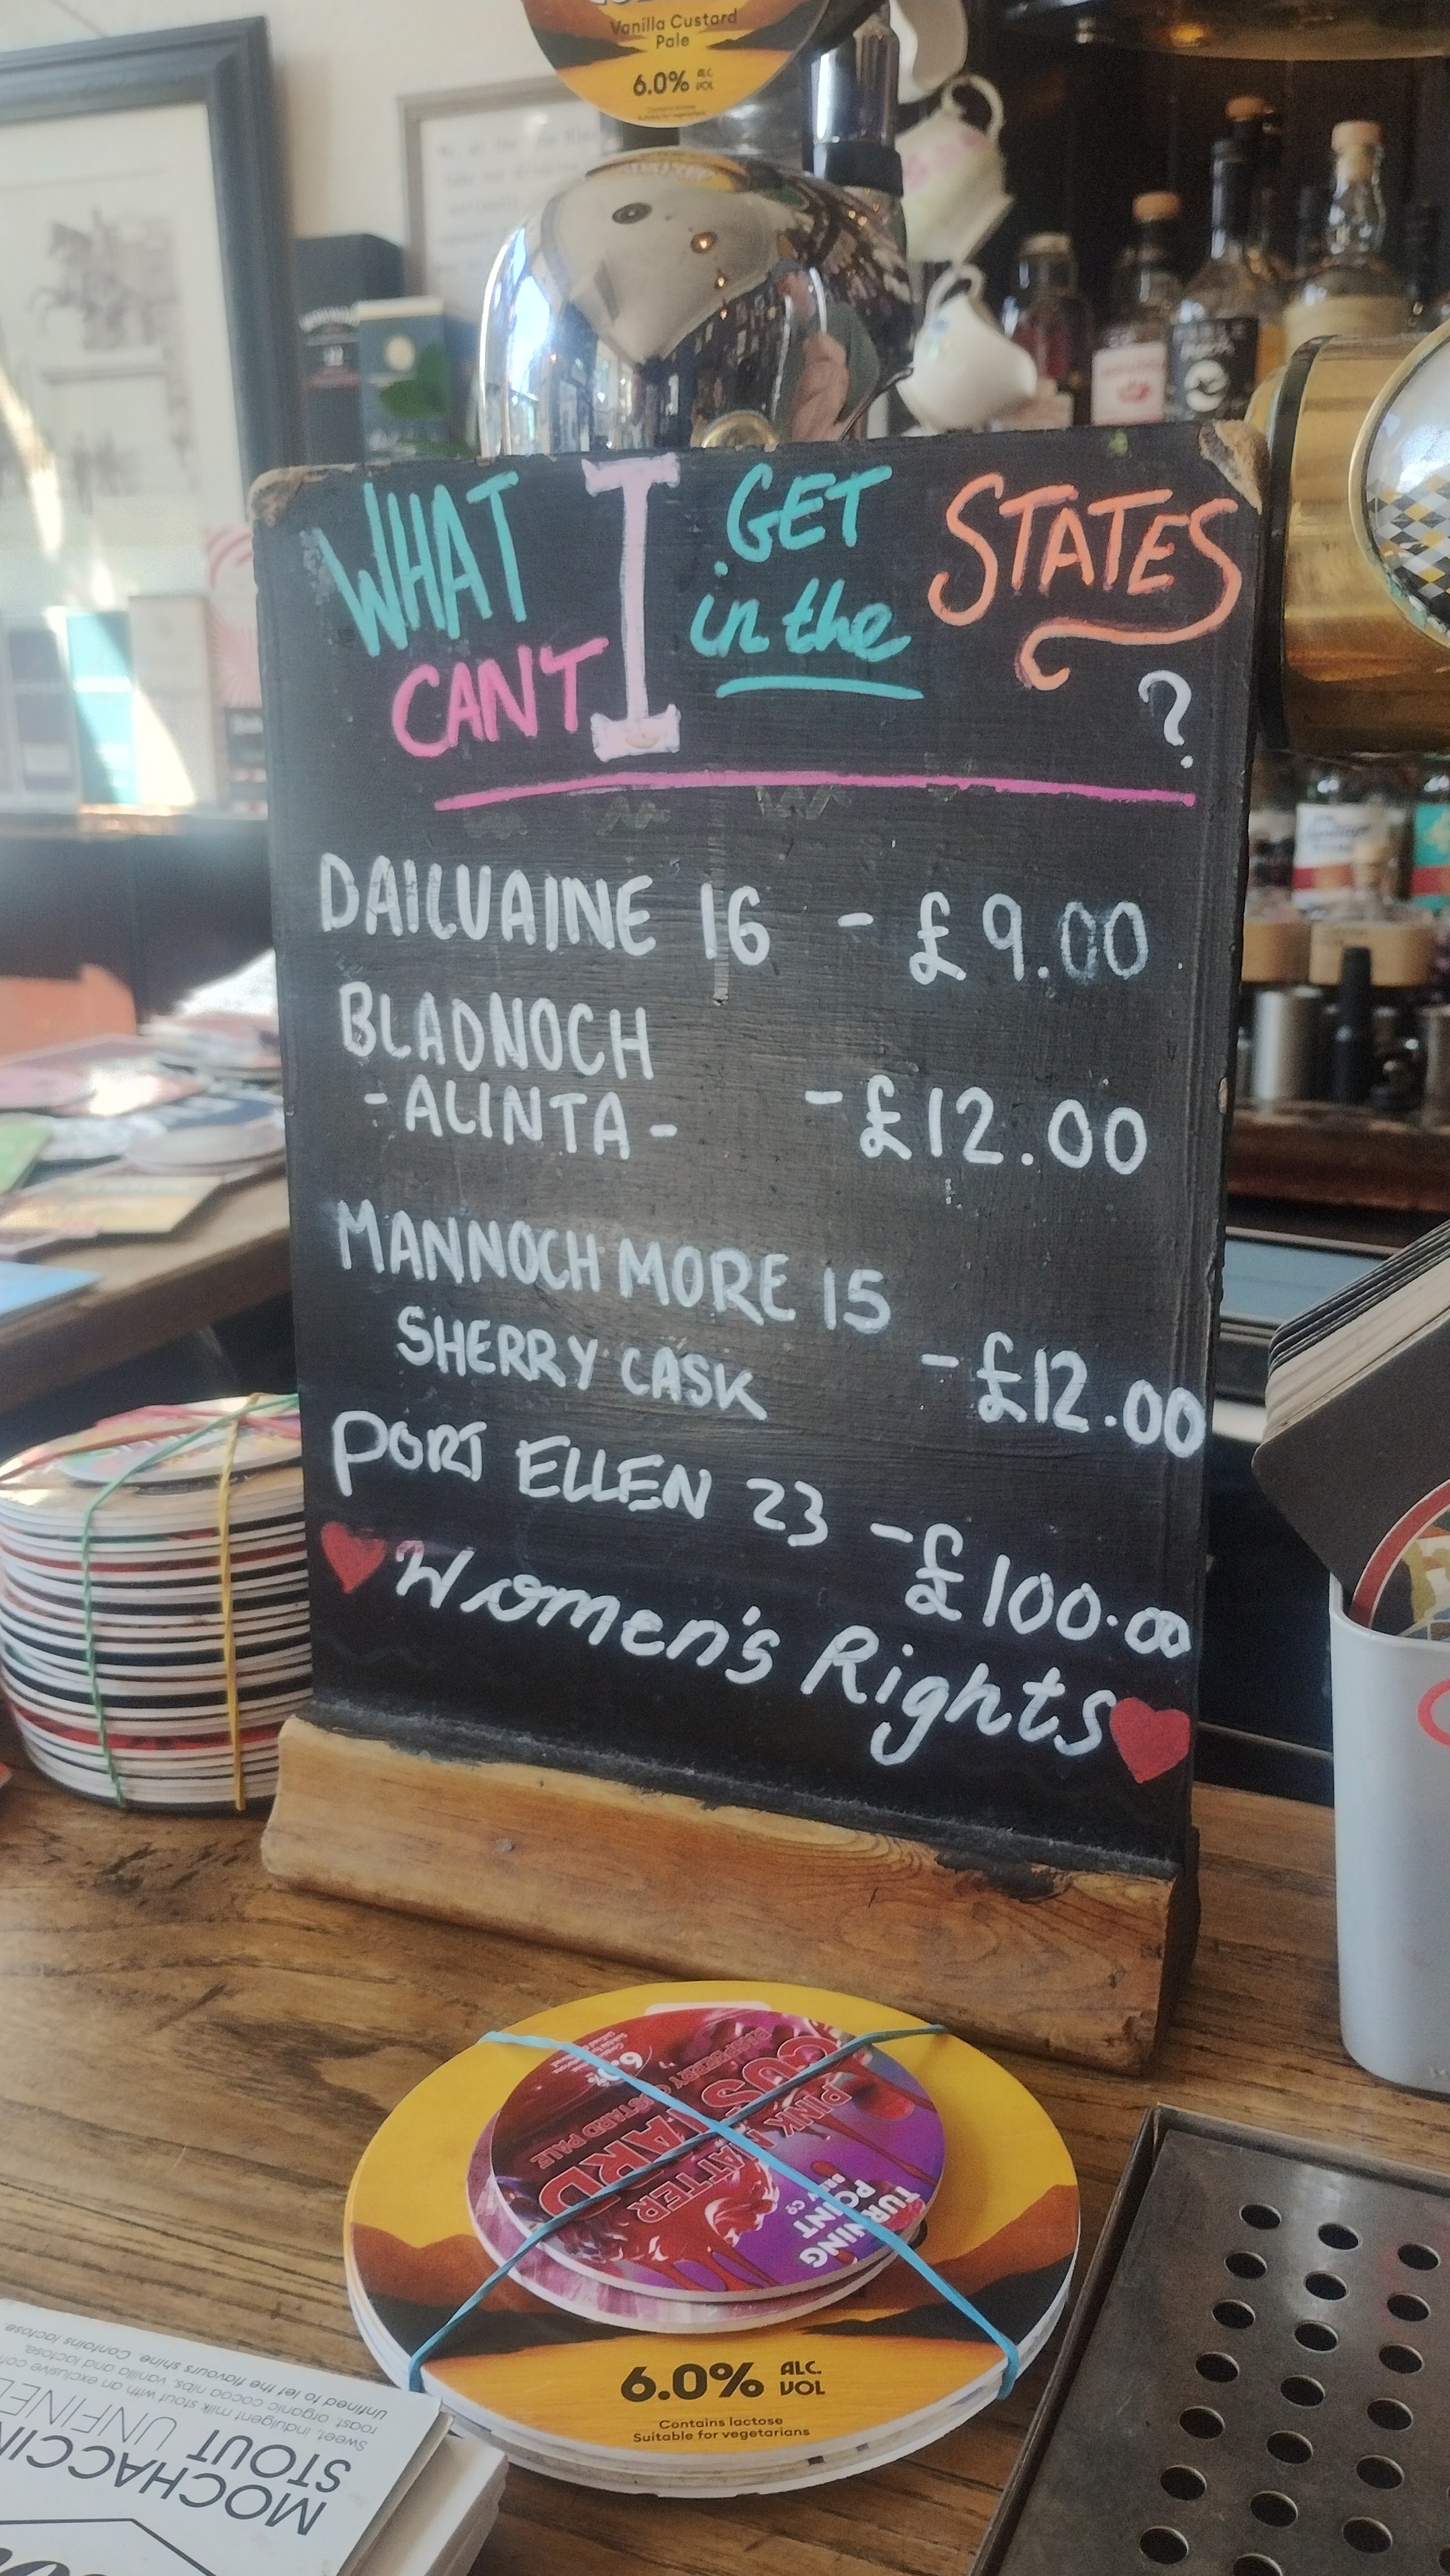 Vanilla Custard
Pale
6.0% ALC. VOL
WHAT CAN'T I GET in the STATES ?
DAILUAINE 16 - £9.00
BLADNOCH
- ALINTA - - £12.00
MANNOCHMORE 15
SHERRY CASK - £12.00
PORT ELLEN 23 - £100.00
Women's Rights
TURNING
POINT
BREW CO
PINK MATTER
CUSTARD
RASPBERRY CUSTARD PALE
6.0% ALC. VOL
Contains lactose
Suitable for vegetarians
STOUT UNFINED
Sweet, indulgent milk stout with an exclusive
roast, organic cocoa nibs, vanilla and lactose.
Unfined to let the flavours shine. Contains lactose